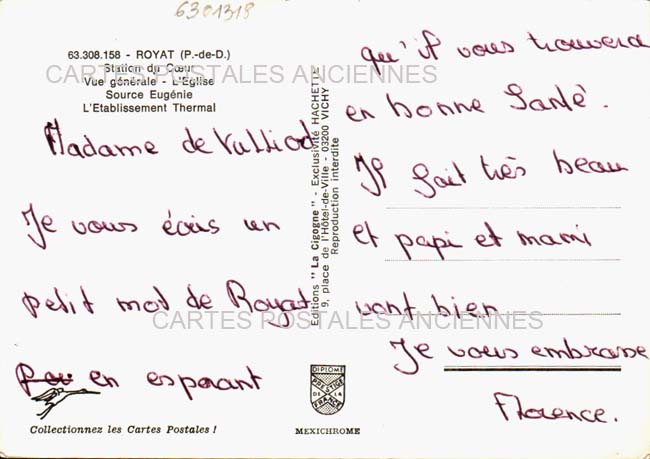 6301318
63.308.158 - ROYAT (P.-de-D.)
Station du Cœur
Vue générale - L'Eglise
Source Eugénie
L'Etablissement Thermal
CARTES POSTALES ANCIENNES
Madame de Vulliod
Je vous écris un
petit mot de Royat
en esperant
qu'il vous trouvera
en bonne Santé.
Il fait très beau
et papi et mami
vont bien
Je vous embrasse
Florence.
Editions "La Cigogne" - Exclusivité HACHETTE
9, place de l'Hôtel-de-Ville - 03200 VICHY
Reproduction interdite
CARTES POSTALES ANCIENNES
DIPLOME
PRESTIGE
DE LA
FRANCE
Collectionnez les Cartes Postales !
MEXICHROME